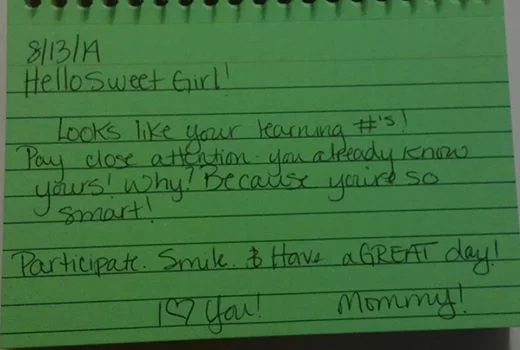 8/13/14
Hello Sweet Girl!
Looks like your learning #'s!
Pay close attention. you already know
yours! Why? Because you're so
smart!
Participate. Smile. & Have a GREAT day!
I ♡ You! Mommy!